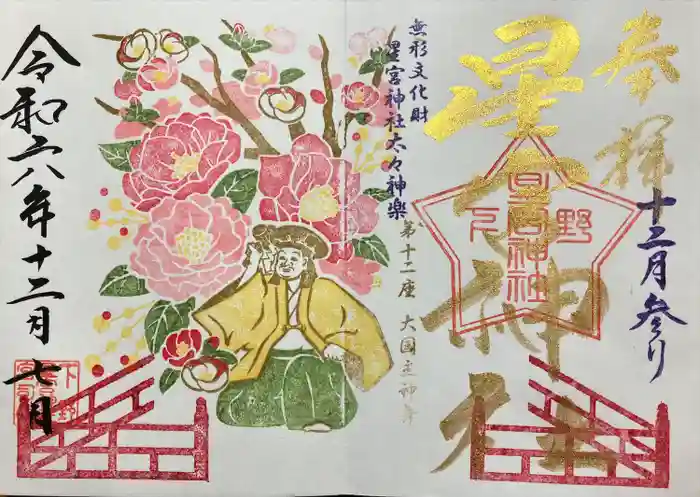 奉拝
十二月参り
星宮神社
星宮神社
下野
無形文化財
星宮神社太々神楽
第十二座 大国主神舞
令和六年十二月七日